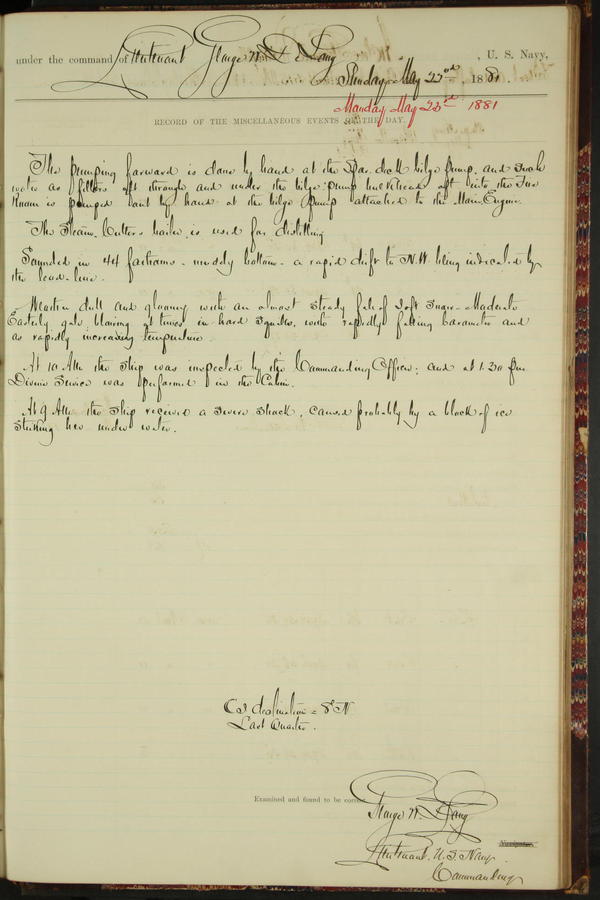 under the command of Lieutenant George W. De Long, U. S. Navy,
Sunday May 22nd, 1881
Monday May 23rd 1881
RECORD OF THE MISCELLANEOUS EVENTS OF THE DAY.
The pumping forward is done by hand at the Spar deck bilge pump, and such
water as filters aft through and under the bilge pump bulkhead aft into the Fire
Room is pumped out by hand at the bilge pump attached to the Main Engine.
The Steam Cutters boiler is used for distilling
Sounded in 44 fathoms - muddy bottom - a rapid drift to N.W. being indicated by
the lead-line.
Weather dull and gloomy with an almost steady fall of soft snow - Moderate
Easterly gale blowing at times in hard squalls, with rapidly falling barometer and
as rapidly increasing temperature.
At 10 AM the Ship was inspected by the Commanding Officer; and at 1.30 pm
Divine Service was performed in the Cabin.
At 9 AM the Ship received a severe shock, caused probably by a block of ice
striking her under water.
declination = 8° N
Last Quarter.
Examined and found to be correct.
George W. De Long
Navigator.
Lieutenant. U.S. Navy.
Commanding